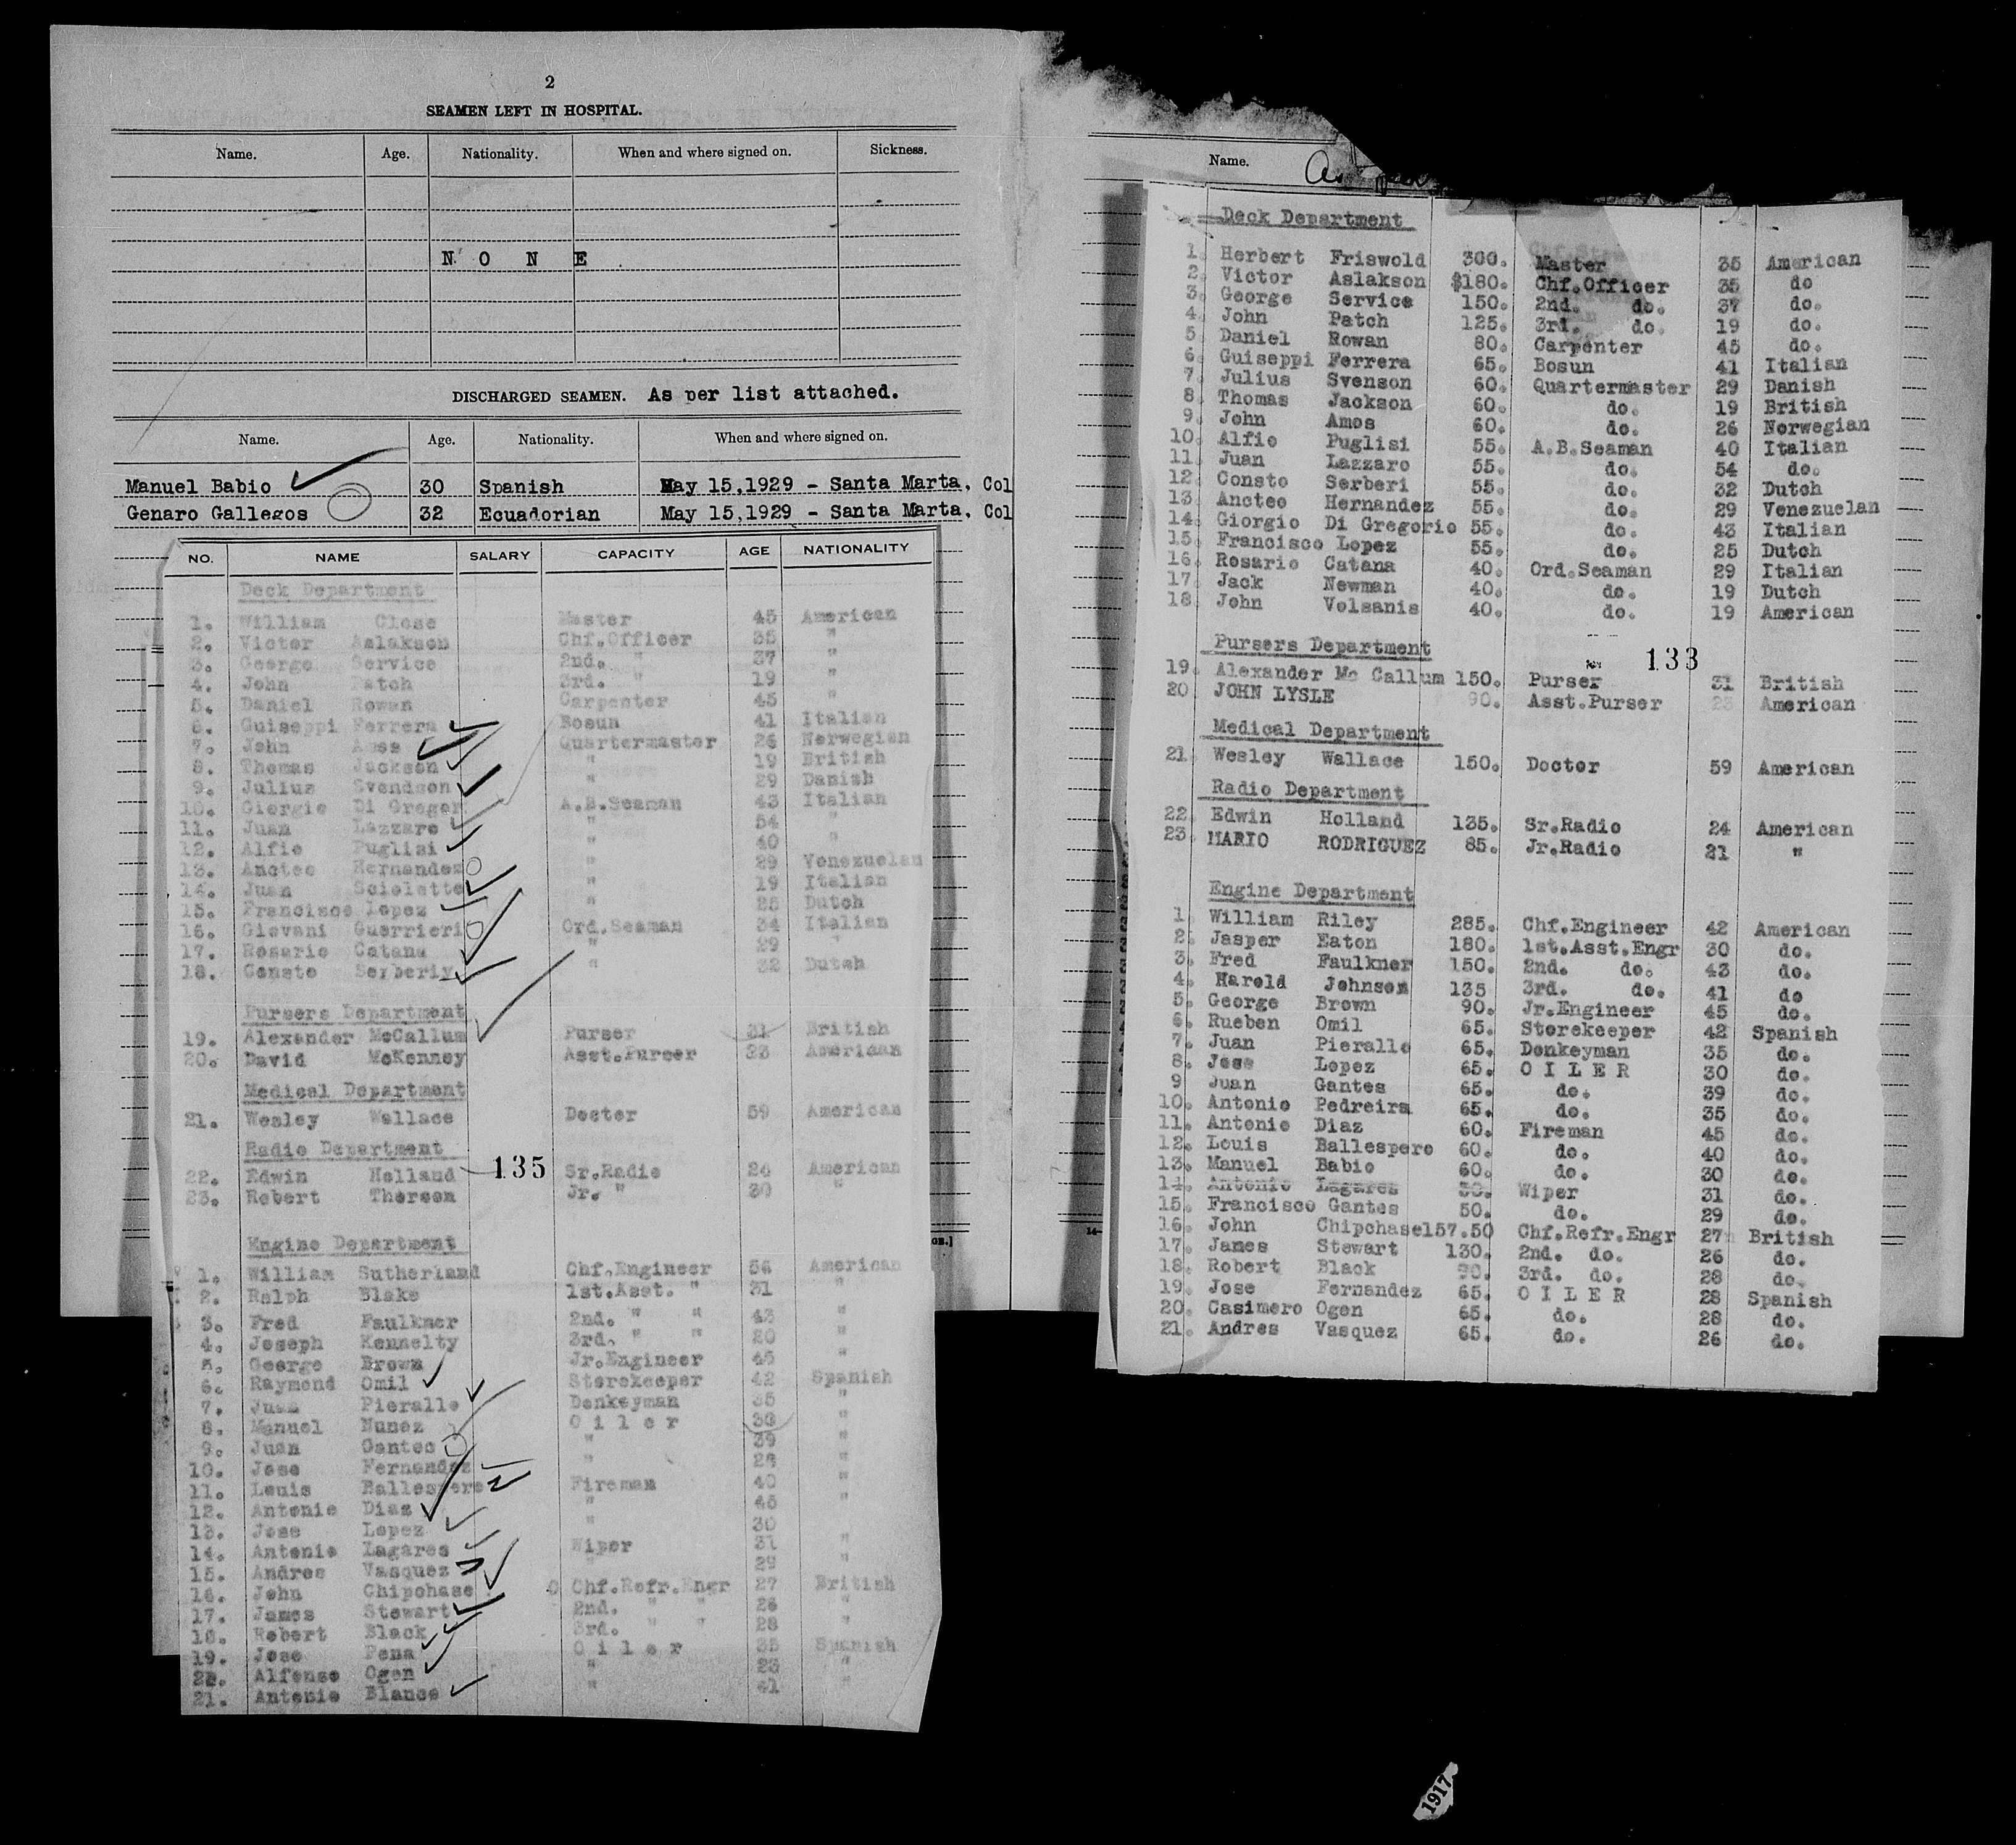 2
SEAMEN LEFT IN HOSPITAL.
Name. Age. Nationality. When and where signed on. Sickness.
N O N E
DISCHARGED SEAMEN. As per list attached.
Name. Age. Nationality. When and where signed on.
Manuel Babio 30 Spanish May 15,1929 - Santa Marta, Col
Genaro Gallegos 32 Ecuadorian May 15,1929 - Santa Marta, Col
NO. NAME SALARY CAPACITY AGE NATIONALITY
Deck Department
1. William Close Master 45 American
2. Victor Aslakson Chf.Officer 35 "
3. George Service 2nd. " 37 "
4. John Patch 3rd. " 19 "
5. Daniel Rowan Carpenter 45
6. Guiseppi Ferrera Bosun 41 Italian
7. John Amos Quartermaster 26 Norwegian
8. Thomas Jackson " 19 British
9. Julius Svendson " 29 Danish
10. Giorgio Di Gregor A.B.Seaman 43 Italian
11. Juan Lazzaro " 54 "
12. Alfio Puglisi " 40 "
13. Ancteo Hernandez " 29 Venezuelan
14. Juan Sciolette " 19 Italian
15. Francisco Lopez " 25 Dutch
16. Giovani Guerrieri Ord.Seaman 34 Italian
17. Rosario Catana " 29 "
18. Consto Serberiy " 32 Dutch
Pursers Department
19. Alexander McCallum Purser 31 British
20. David McKenney Asst.Purser 23 American
Medical Department
21. Wesley Wallace Doctor 59 American
Radio Department
135
22. Edwin Holland Sr.Radio 24 American
23. Robert Thorsen Jr. " 30 "
Engine Department
1. William Sutherland Chf.Engineer 56 American
2. Ralph Blake 1st.Asst. " 31 "
3. Fred Faulkner 2nd. " " 43 "
4. Joseph Kennelty 3rd. " " 20 "
5. George Brown Jr.Engineer 45 "
6. Raymond Omil Storekeeper 42 Spanish
7. Juan Pierallo Donkeyman 35 "
8. Manuel Nunez O i l e r 38 "
9. Juan Gantes " 39 "
10. Jose Fernandez " 28 "
11. Louis Ballespero Fireman 40 "
12. Antonio Diaz " 45 "
13. Jose Lopez " 30
14. Antonio Lagares Wiper 31 "
15. Andres Vasquez " 29 "
16. John Chipchase Chf.Refr.Engr 27 British
17. James Stewart 2nd. " " 26 "
18. Robert Black 3rd. " " 28 "
19. Jose Pena O i l e r 35 Spanish
Alfonso Ogen " 23 "
21. Antonio Blanco " 41 "
Name. As per
Deck Department
1. Herbert Friswold 300. Master 35 American
2. Victor Aslakson $180. Chf.Officer 35 do
3. George Service 150. 2nd. do. 37 do.
4. John Patch 125. 3rd. do. 19 do.
5. Daniel Rowan 80. Carpenter 45 do.
6. Guiseppi Ferrera 65. Bosun 41 Italian
7. Julius Svenson 60. Quartermaster 29 Danish
8. Thomas Jackson 60. do. 19 British
9. John Amos 60. do. 26 Norwegian
10. Alfio Puglisi 55. A.B.Seaman 40 Italian
11. Juan Lazzaro 55. do. 54 do.
12. Consto Serberi 55. do. 32 Dutch
13. Ancteo Hernandez 55. do. 29 Venezuelan
14. Giorgio Di Gregorio 55. do. 43 Italian
15. Francisco Lopez 55. do. 25 Dutch
16. Rosario Catana 40. Ord.Seaman 29 Italian
17. Jack Newman 40. do. 19 Dutch
18. John Volsanis 40. do. 19 American
Pursers Department
133
19. Alexander Mc Callum 150. Purser 31 British
20. JOHN LYSLE 90. Asst.Purser 23 American
Medical Department
21. Wesley Wallace 150. Doctor 59 American
Radio Department
22. Edwin Holland 135. Sr.Radio 24 American
23. MARIO RODRIGUEZ 85. Jr.Radio 21 "
Engine Department
1. William Riley 285. Chf.Engineer 42 American
2. Jasper Eaton 180. 1st.Asst.Engr 30 do.
3. Fred Faulkner 150. 2nd. do. 43 do.
4. Harold Johnson 135 3rd. do. 41 do
5. George Brown 90. Jr.Engineer 45 do.
6. Rueben Omil 65. Storekeeper 42 Spanish
7. Juan Pierallo 65. Donkeyman 35 do.
8. Jose Lopez 65. O I L E R 30 do.
9 Juan Gantes 65. do. 39 do.
10. Antonio Pedreira 65. do. 35 do.
11. Antonio Diaz 60. Fireman 45 do.
12. Louis Ballespero 60. do. 40 do.
13. Manuel Babio 60. do. 30 do.
14. Antonio Lagares 50. Wiper 31 do.
15. Francisco Gantes 50. do. 29 do.
16. John Chipchase157.50 Chf.Refr.Engr 27 British
17. James Stewart 130. 2nd. do. 26 do.
18. Robert Black 90. 3rd. do. 28 do.
19. Jose Fernandez 65. O I L E R 28 Spanish
20. Casimero Ogen 65. do. 28 do.
21. Andres Vasquez 65. do. 26 do.
1917